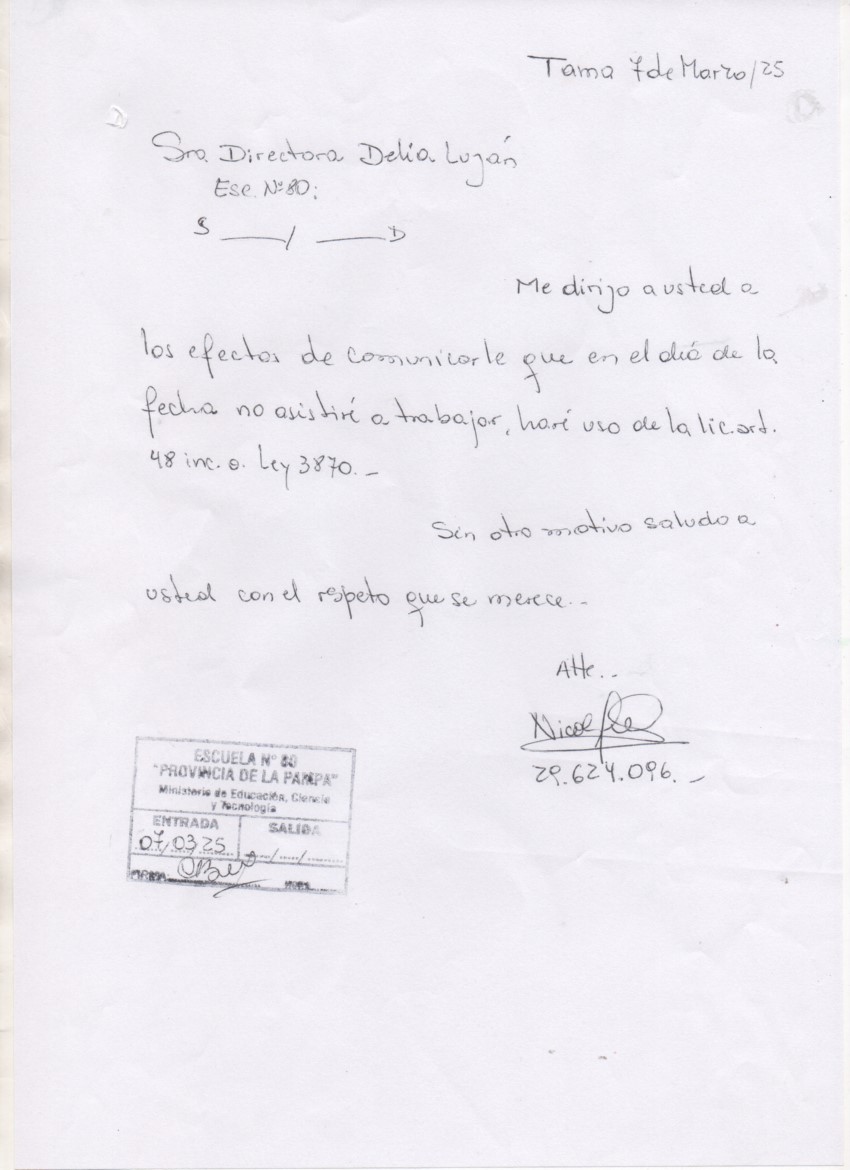 Tama 7 de Marzo/25
Sra. Directora Delia Luján
Esc. Nº 80:
S ____/ ____D
Me dirijo a usted a
los efectos de comunicarle que en el diá de la
fecha no asistiré a trabajar, haré uso de la lic. art.
48 inc. a. Ley 3870.-
Sin otro motivo saludo a
usted con el respeto que se merece.-
Atte..
29.624.096.-
ESCUELA Nº 80
"PROVINCIA DE LA PAMPA"
Ministerio de Educación, Ciencia
y Tecnología
ENTRADA SALIDA
07/03/25 .../...../........
FIRMA: HORA